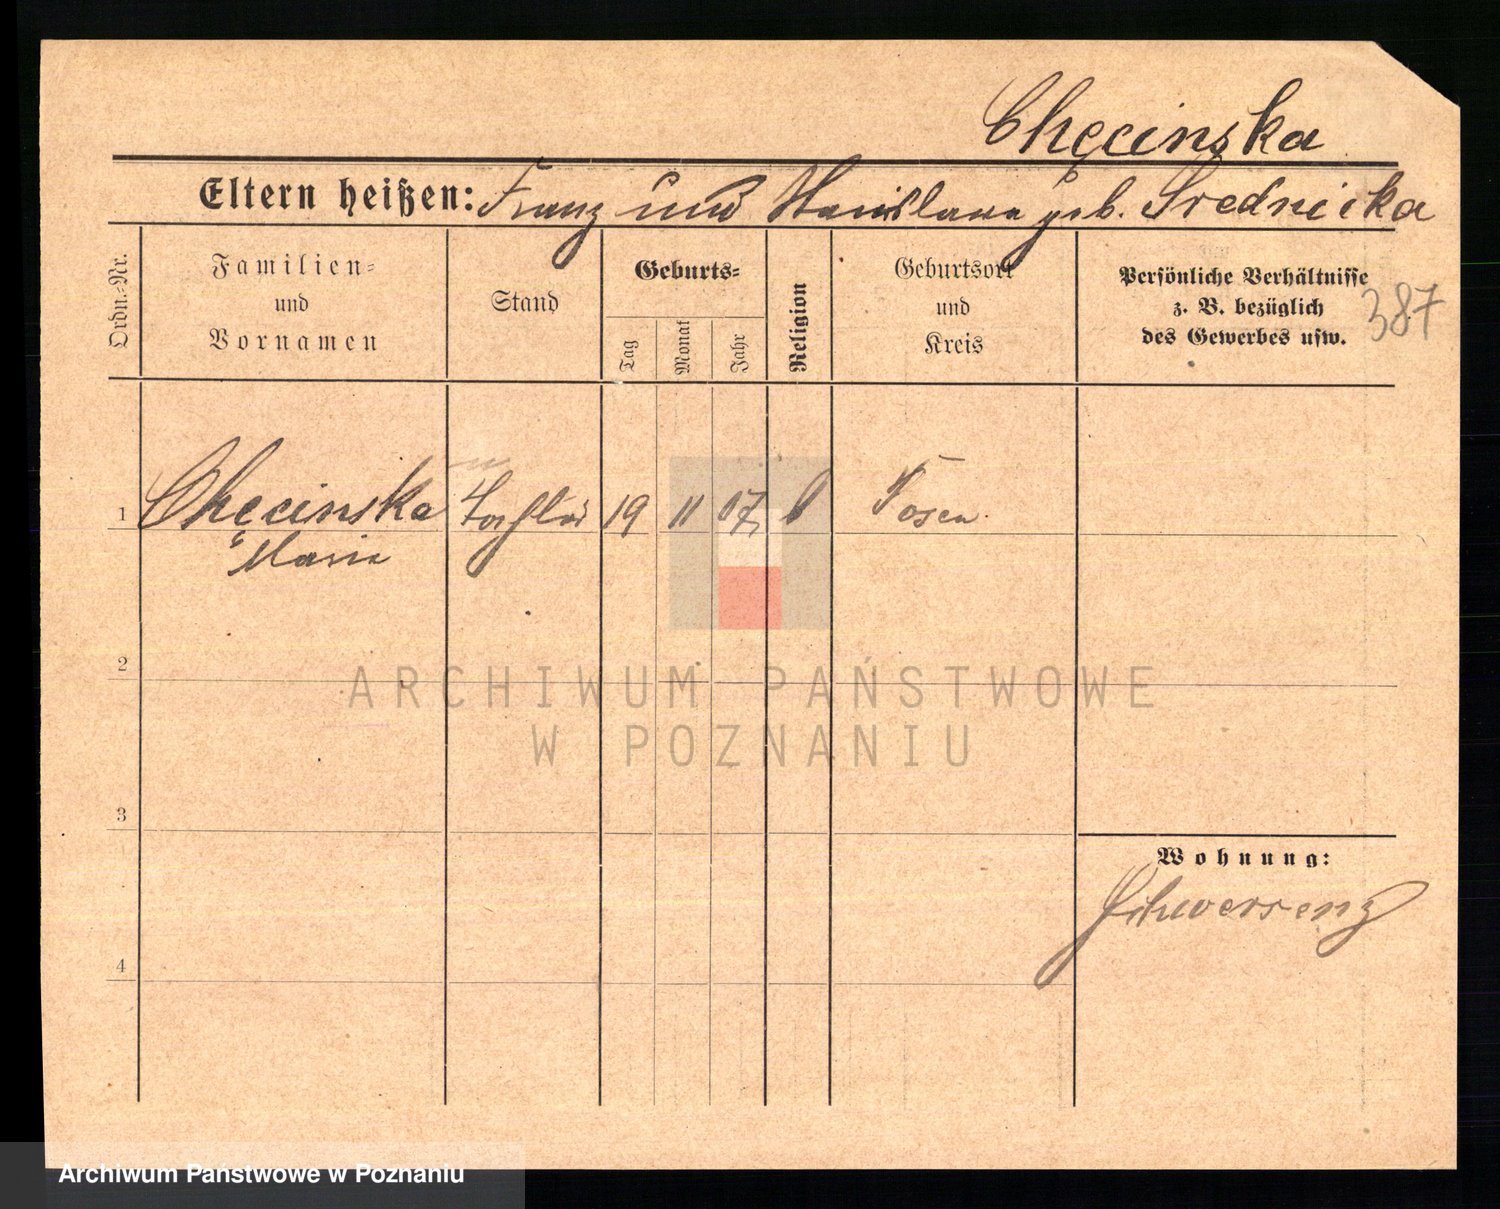 Chęcinska
Eltern heißen: Franz und Stanislawa geb. Srednicka
Ordn.-Nr.
Familien-
und
Vornamen
Stand
Geburts-
Tag
Monat
Jahr
Religion
Geburtsort
und
Kreis
Persönliche Verhältnisse
z. B. bezüglich
des Gewerbes usw.
387
1 Chęcinska Tochter 19 11 07 Posen
Marie
2
3
4
Wohnung:
Schwersenz
ARCHIWUM PAŃSTWOWE
W POZNANIU
Archiwum Państwowe w Poznaniu